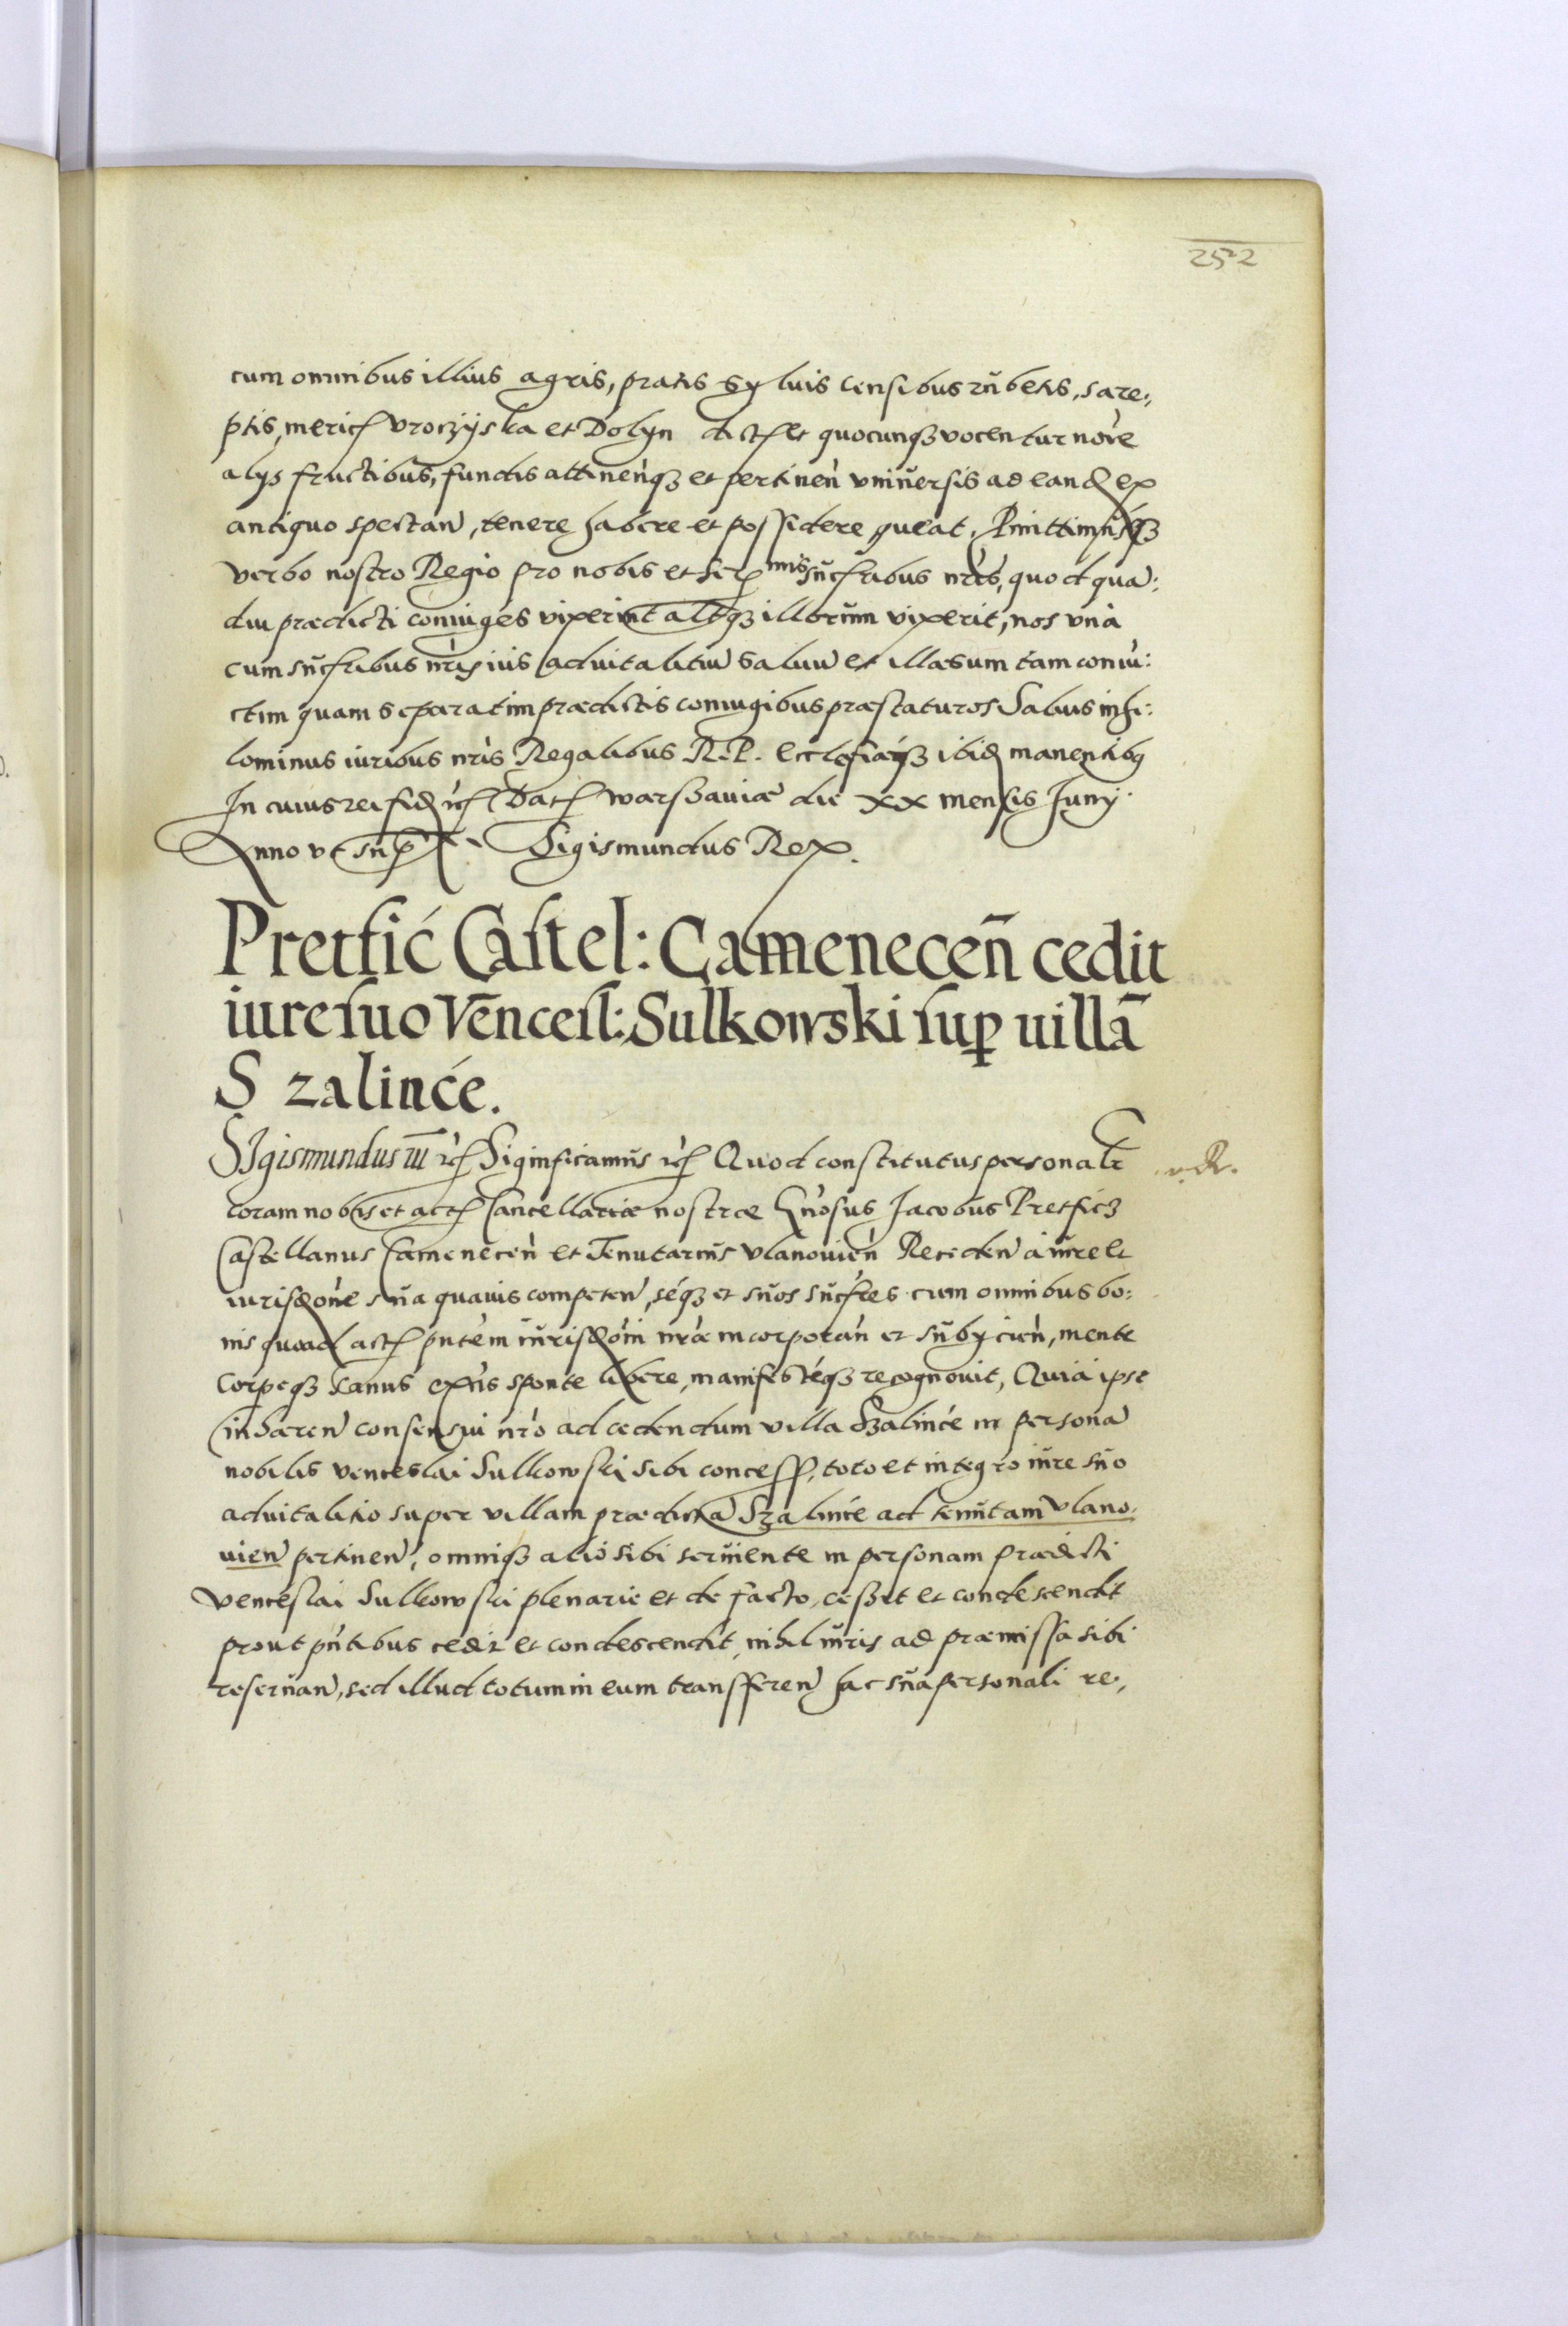 252
cum omnibus illius agris, pratis syluis censibus rũbetis, sare:,
ptis, mericſ vroczyska et Dolyn dictſ et quocunqȝ vocentur noïe
alys fructibus, fundis attineǹqȝ et pertineǹ vniũersis ad eandꝫ ex
antiquo spectaǹ, tenere habere et possidere queat. Pmittimusqȝ
verbo nostro Regio pro nobis et Serꝫ mis sũcſribus nr̃is, quod qua:
diu prædicti coniuges vixerint altqȝ illorum vixerit, nos vnà
cum sũcſribus nr̃is ius aduitalitiũ saluũ et illæsum tam coniũ:
ctim quam separatim prædictis coniugibus præstaturos Saluis nihi:
lominus iuribus nr̃is Regalibus R.P. Ecclesiæqȝ ibidꝫ manentibꝰ
In cuius rei fidꝫ ꝛcſ Datſ warssauiæ die XX mensis Juny
Anno vt sup̃ Sigismundus Rex.
Pretfić Castel: Camenecen̄ cedit
iure suo Vēncesl: Sulkowski sup̱ uillā
Szalinće.
SIgismundus III ꝛcſ Significamus ꝛcſ Quod constitutus personalr̃
coram nobis et actſ Cancellariæ nostræ Gǹosus Jacobus Pretficȝ
Castellanus Cameneceǹ et Tenutarius vlanouieǹ Recedeǹ à iũre et
iurisdꝫoǹe sũa quauis competeǹ, séqȝ et sũos sũcſres cum omnibus bo:
nis quoad actſ pǹtem iũrisdꝫoǹi nr̃æ incorporaǹ et sũbycieǹ, mente
corpeqȝ sanus exǹs sponte libere, manifestéqȝ recognouit, Quia ipse
inhæreǹ consensui nr̀o ad cedendum villa Szalinće in personã
nobilis venceslai Sulkowski sibi concesſ, toto et integro iũre sũo
aduitalitio super villam prædictã Szalinće ad tenũtam vlano:
uieǹ pertineǹ, omniqȝ alio sibi serũiente in personam prædicti
venceslai Sulkowski plenarie et de facto, cessit et condescendit
prout pǹtibus cedit et condescendit, nihil iũris ad præmissa sibi
reserũaǹ, sed illud totum in eum transffereǹ hac sũa personali re:,